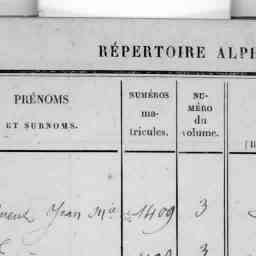 RÉPERTOIRE ALPH
PRÉNOMS
ET SURNOMS.
NUMÉROS
ma-
tricules.
NU-
MÉRO
du
volume.
Jean Mie 1409 3
3